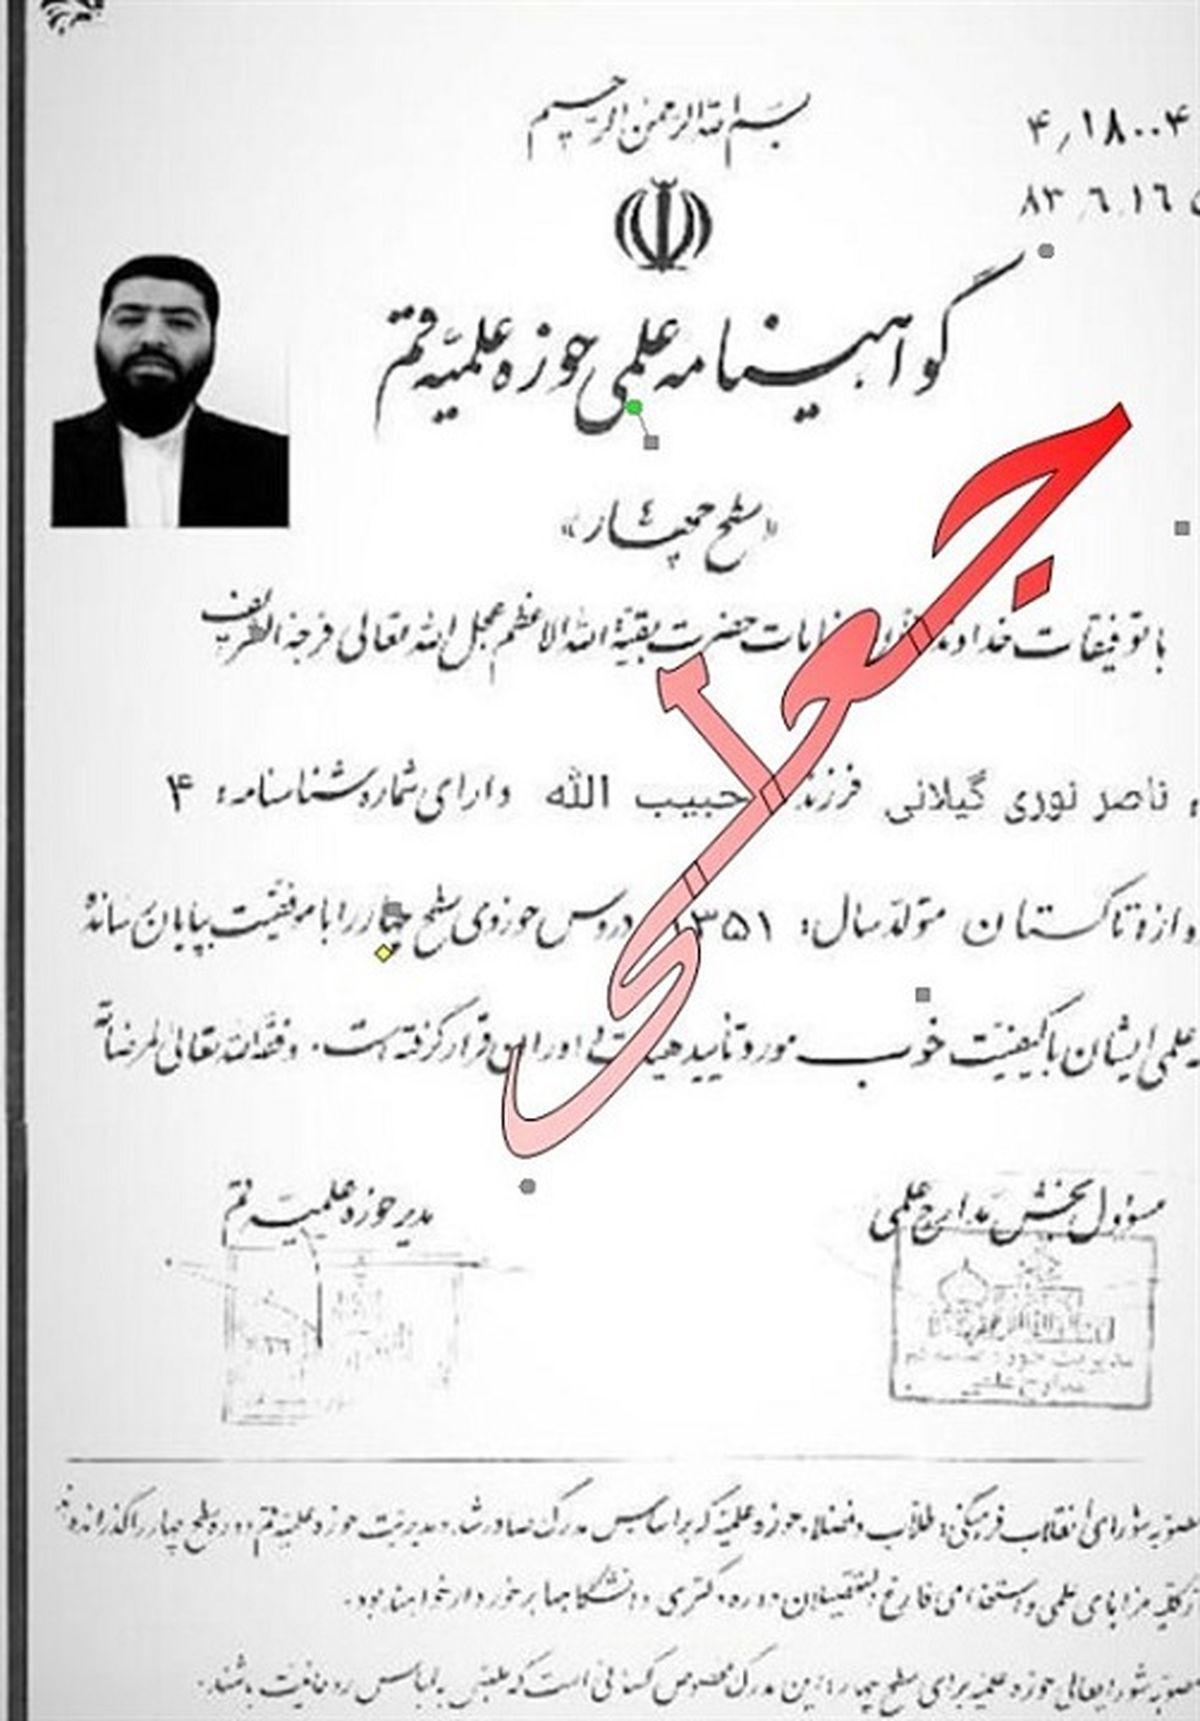 بسم الله الرحمن الرحیم
۴٫۱۸۰۰۴
۸۳٫۶٫۱۶
گواهینامه علمی حوزه علمیه قم
«سطح چهار»
با توفیقات خداوند حضرت بقیة الله الاعظم عجل الله تعالی فرجه الشریف
ناصر نوری گیلانی فرزند حبیب الله دارای شماره شناسنامه: ۴
تاکستان متولد سال: ۱۳۵۱ دروس حوزوی سطح چهار را با موفقیت بپایان رسانده
علمی ایشان با کیفیت خوب مورد تأیید هیئت قرار گرفته است. وفقه الله تعالی لمرضاته
جعلی
مسؤول بخش مدارج علمی
مدیر حوزه علمیه قم
مدیریت حوزه علمیه قم
مدارج علمی
شورای انقلاب فرهنگی: طلاب و فضلاء حوزه علمیه که براساس مدرک صادر شده مدیریت حوزه علمیه قم دوره سطح چهار را گذرانده
از کلیه مزایای علمی و استخدامی فارغ التحصیلان دوره دکتری دانشگاهها برخوردار خواهند بود.
شورایعالی حوزه علمیه برای سطح چهار این مدرک مخصوص کسانی است که ملبس به لباس روحانیت باشند.